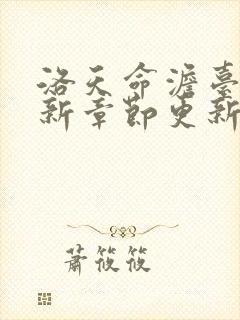 洛天命澹臺
新章節更新
蕭筱筱